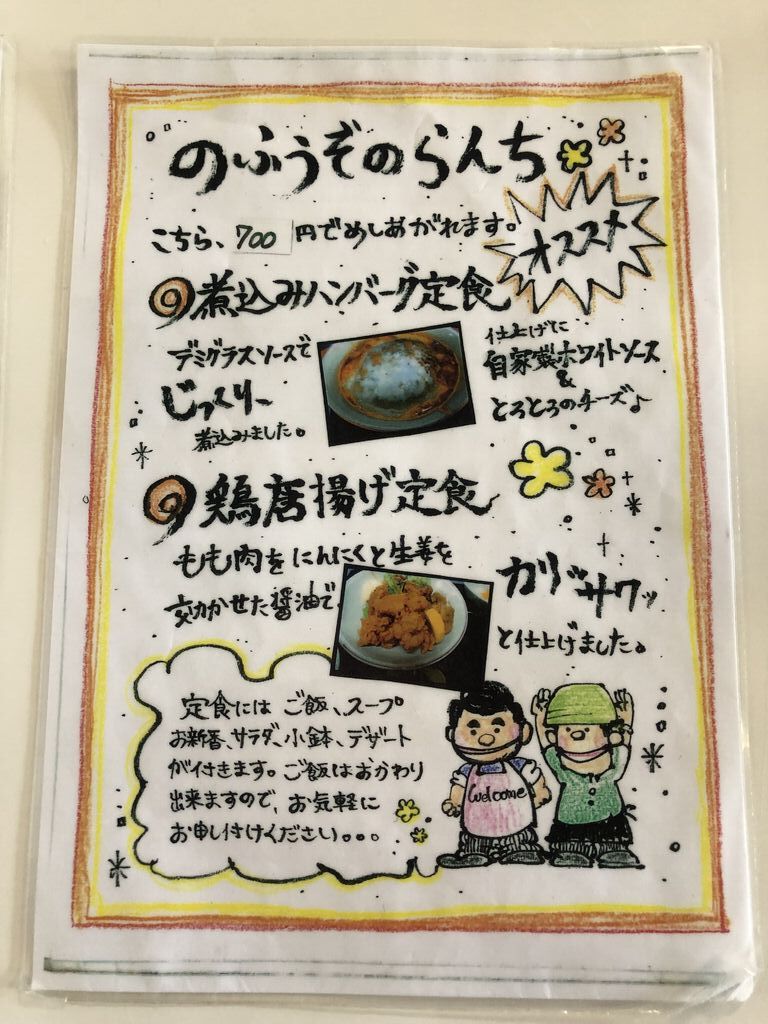 のふうぞのらんち
こちら、700円でめしあがれます。
オススメ
煮込みハンバーグ定食
デミグラスソースで
じっくりー
煮込みました。
仕上げに
自家製ホワイトソース
&
とろとろのチーズ♪
鶏唐揚げ定食
もも肉をにんにくと生姜を
効かせた醤油で
カリッサクッ
と仕上げました。
定食には ご飯、スープ
お新香、サラダ、小鉢、デザート
が付きます。ご飯はおかわり
出来ますので、お気軽に
お申し付けください。。。
Welcome